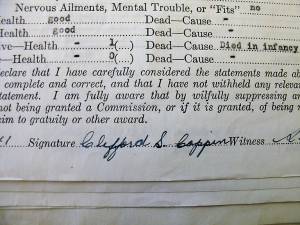 Nervous Ailments, Mental Trouble, or "Fits" no
Health good Dead—Cause -
Health good Dead—Cause -
ve—Health - 1(...) Dead—Cause Died in infancy
ve—Health - 0(...) Dead—Cause -
eclare that I have carefully considered the statements made a
complete and correct, and that I have not withheld any releva
tatement. I am fully aware that by wilfully suppressing a
not being granted a Commission, or if it is granted, of being
im to gratuity or other award.
Signature Clifford S. Coppin Witness